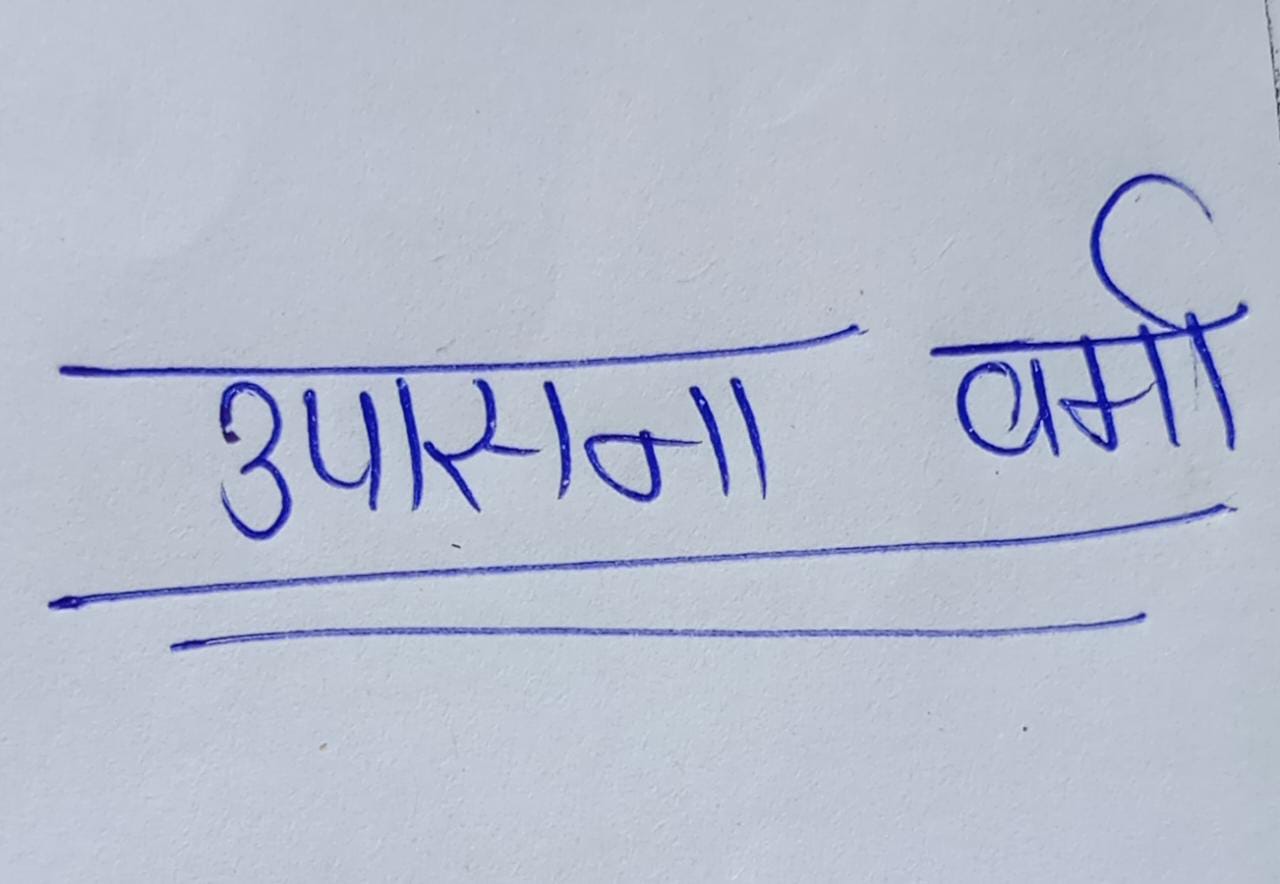 उपासना वर्मा